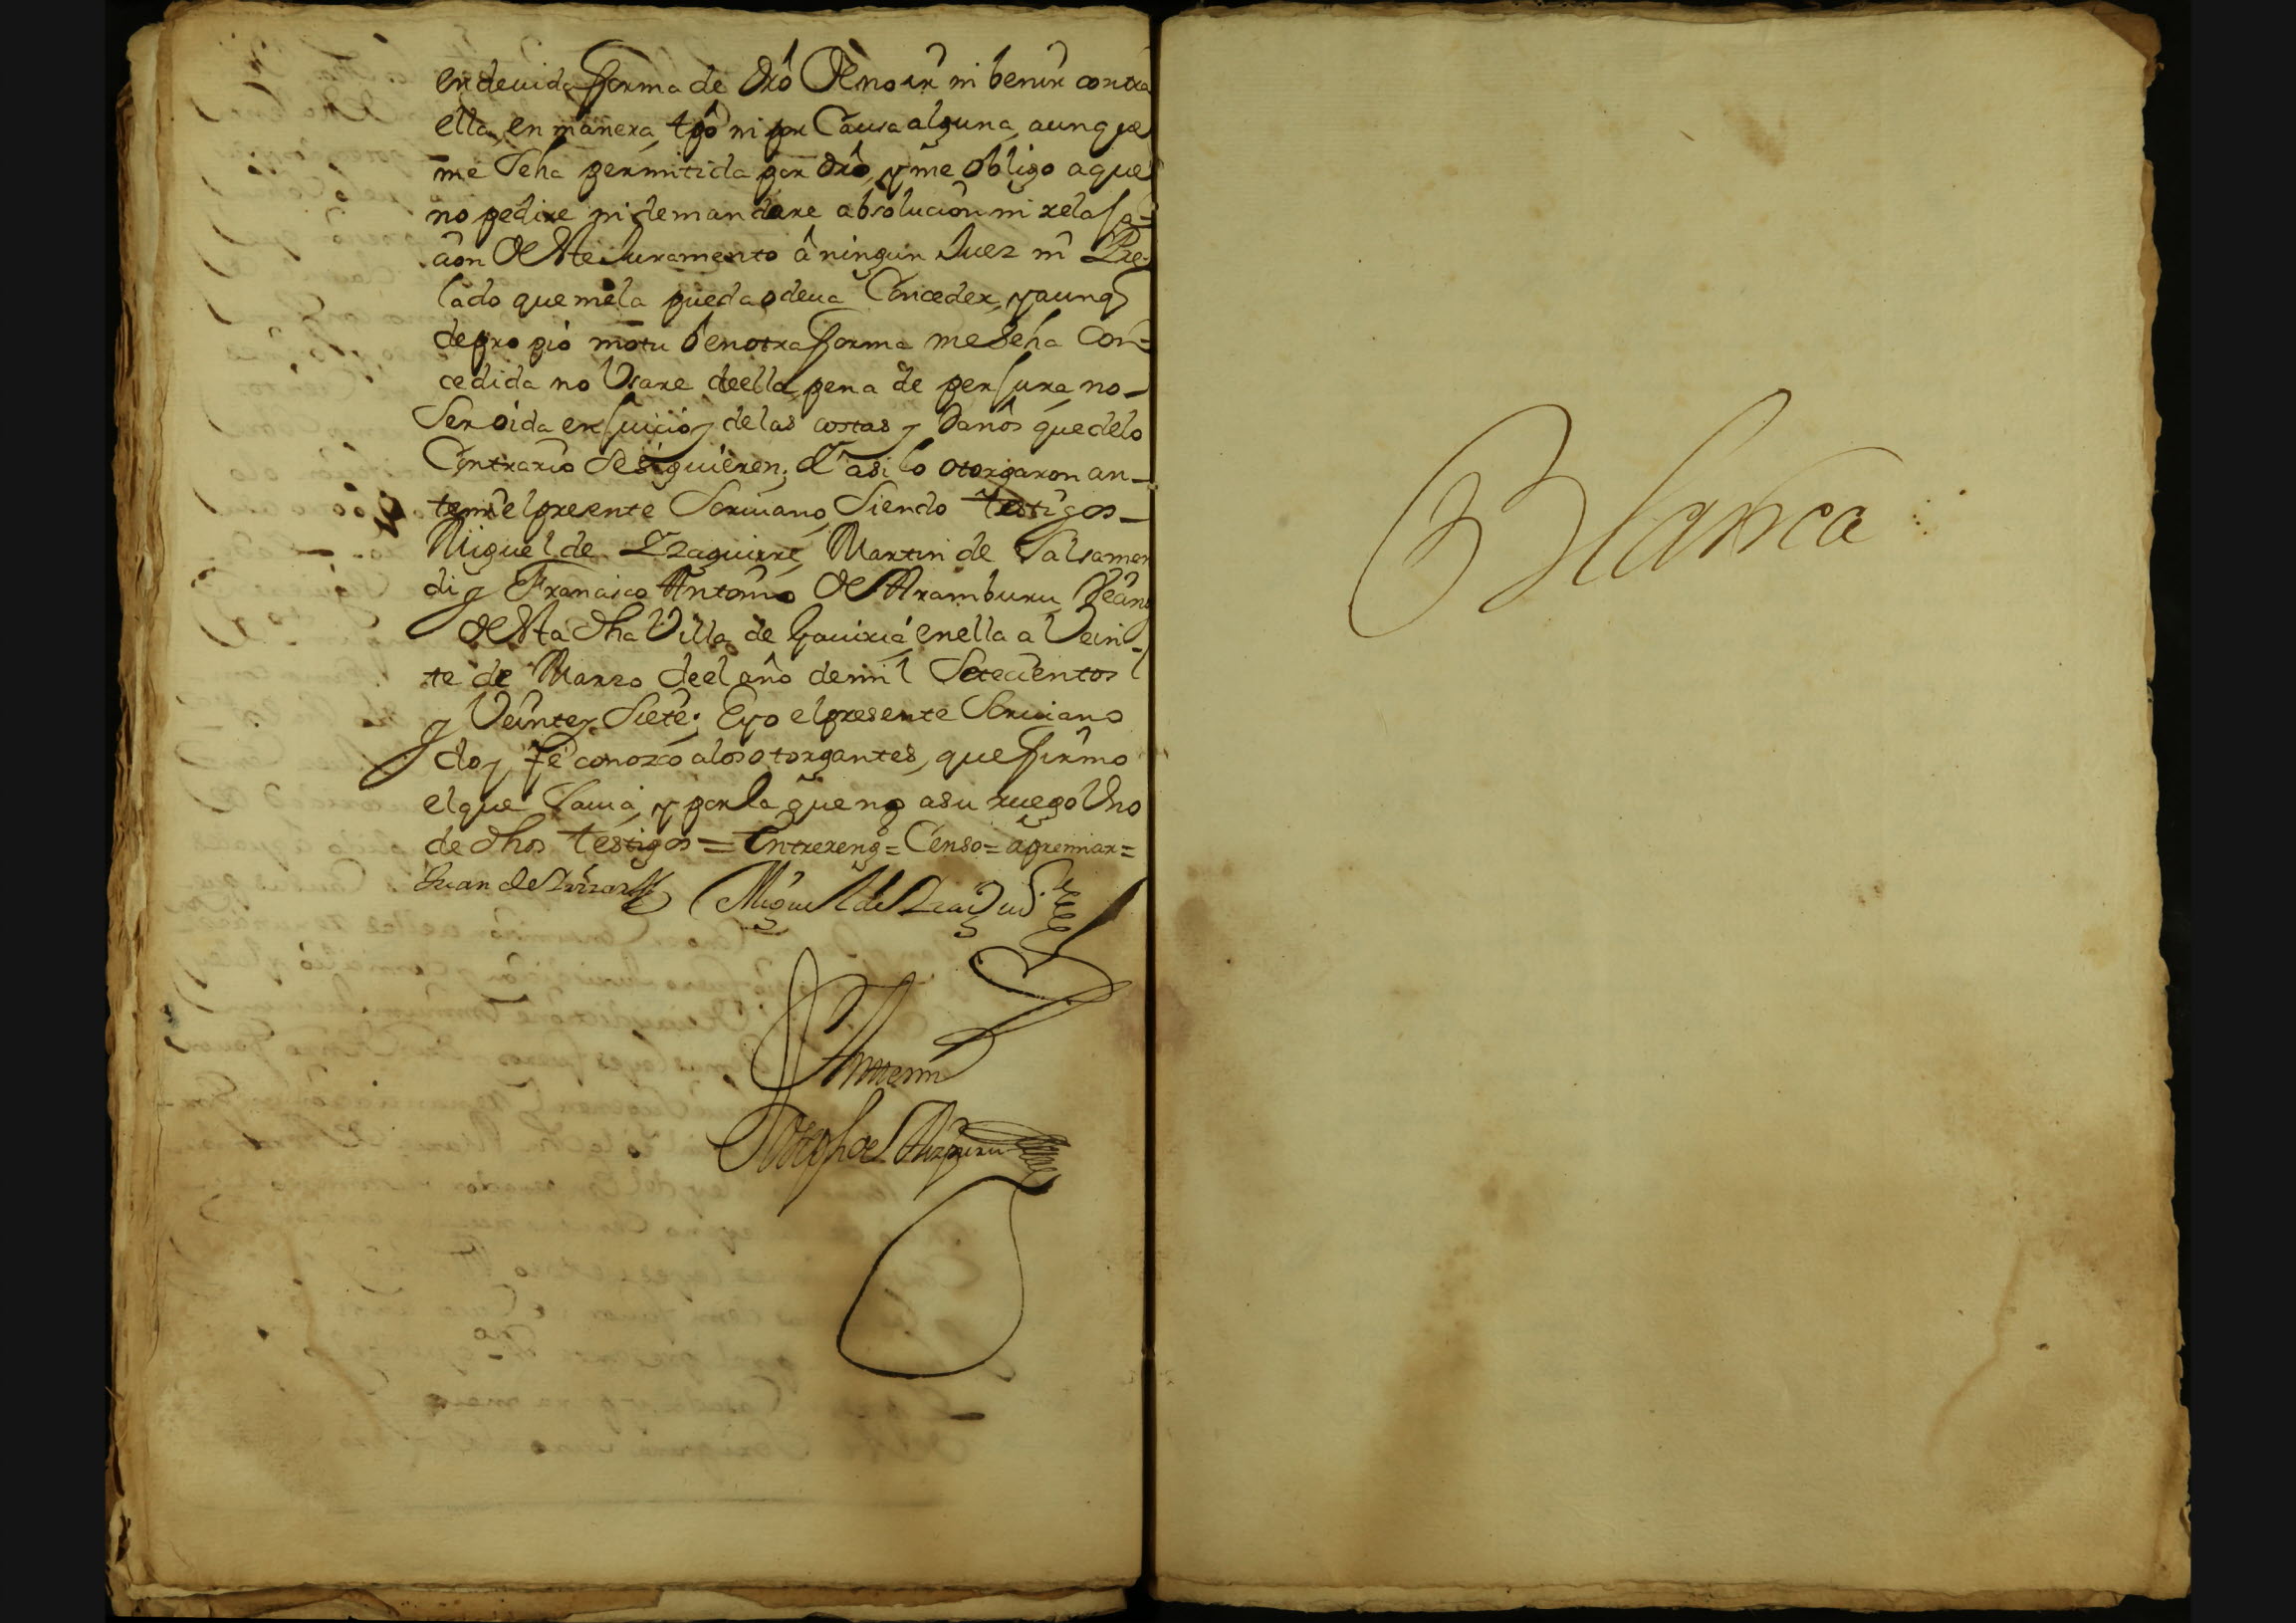 en deuida forma de dro De no ir ni benir contra
ella, en manera, tpo ni por Causa alguna, aunque
me Seha permitida por dro, y me obligo a que
no pedire ni demandare absolucion ni relaja=
cion De Ste Juramento â ningun Juez ni Pre-
lado que mela pueda o deua Conceder, y aunq
de propio motu ô en otra forma me Seha Con=
cedida no Usare de ella, pena de perjura, no-
Ser oida en juicio y de las costas y Danôs que delo
Contrario Se siguieren; Y asi lo otorgaron an-
temi el presente Scriuano, Siendo testigos-
Miguel de Yzaguirre, Martin de Salsamen
di y Francisco Antonio De Aramburu Veâns
De Sta dha Villa de Gauiria, en ella a Vein-
te de Marzo de el año de mil Setecientos
y Veinte y Siete; E yo el presente Scriuano
doy fe conozco alos otorgantes, que firmo
el que Sauia, y por la que no asu ruego Uno
de dhos testigos = Entrereng.s = Censo = apremiar =
Juan de
Miguel de Yzaguirre
Antemi
Joseph de Aizpuru
Blanca